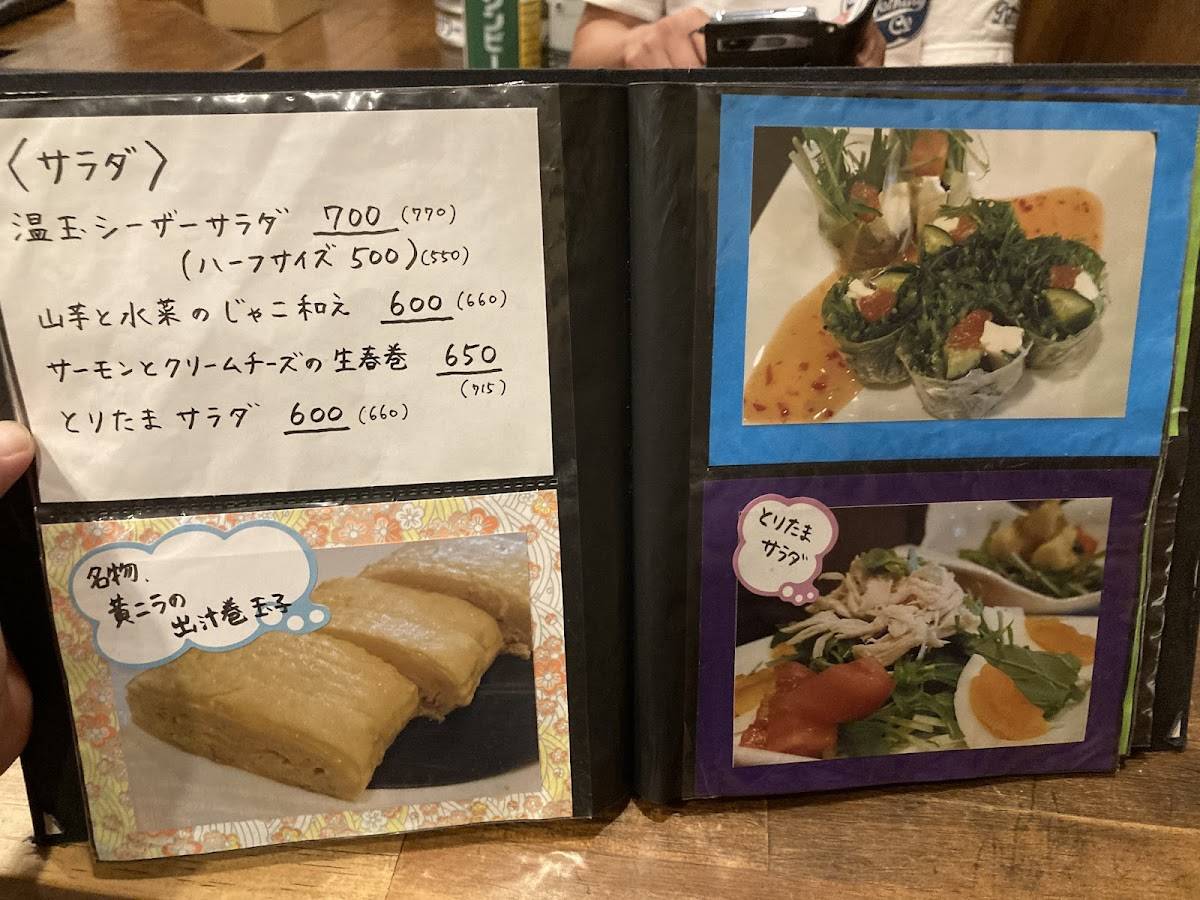 〈サラダ〉
温玉シーザーサラダ 700 (770)
(ハーフサイズ 500) (550)
山芋と水菜のじゃこ和え 600 (660)
サーモンとクリームチーズの生春巻 650
(715)
とりたまサラダ 600 (660)
名物、
黄ニラの
出汁巻玉子
とりたま
サラダ